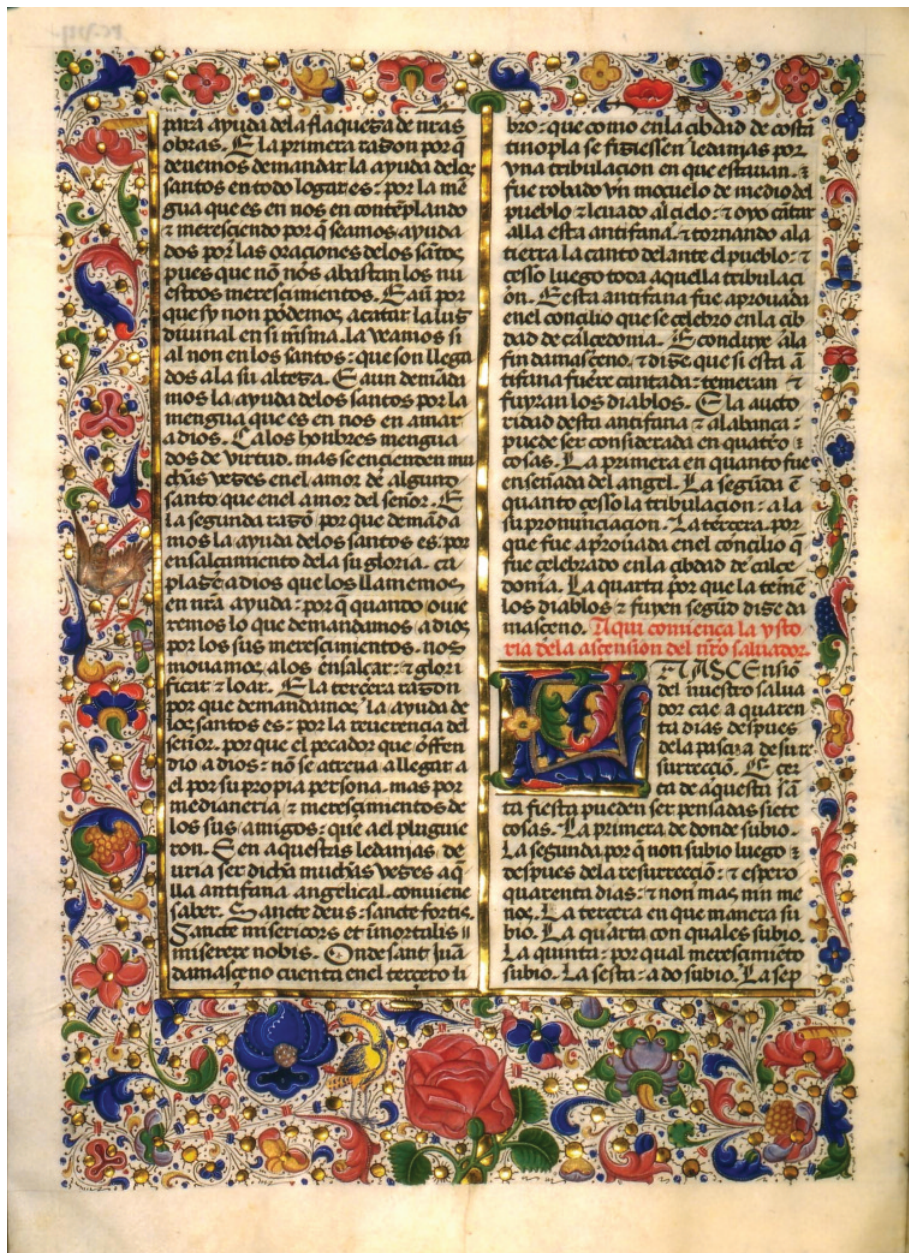 para ayuda dela flaqueza de nr̃as
obras. E la primera razon por q̃
deuemos demandar la ayuda delos
santos en todo logar es: por la mẽ
gua que es en nos en contẽplando
⁊ meresciendo por q̃ seamos ayuda
dos por las oraciones delos sãtos
pues que nõ nos abastan los nu
estros merescimientos. E aũ por
que sy non podemos acatar la luz
diuinal en si mĩsma. la veamos si
al non en los santos: que son llega
dos ala su alteza. E aun demãda
mos la ayuda delos santos por la
mengua que es en nos en amar
a dios. Ca los honbres mengua
dos de virtud. mas se encienden mu
chas vezes enel amor de alguno
santo que enel amor del señor. E
la segunda razõ por que demãda
mos la ayuda delos santos es. por
ensalçamiento dela su gloria. ca
plaze a dios que los llamemos
en nr̃a ayuda: por q̃ quando ouie
remos lo que demandamos a dios
por los sus merescimientos. nos
mouamos alos ensalçar: ⁊ glori
ficar ⁊ loar. E la tercera razon
por que demandamos la ayuda de
los santos es: por la reuerencia del
señor. por que el pecador que offen
dio a dios: nõ se atreua allegar a
el por su propia persona. mas por
medianeria ⁊ merescimientos de
los sus amigos: que a el pluguie
ron. E en aquestas ledanias de
uria ser dicha muchas vezes aq̃
lla antifana angelical. conuiene
saber. Sancte deus: sancte fortis.
Sancte misericors et ĩmortalis
miserere nobis. Onde sant juã
damasçeno cuenta enel tercero li
bro: que como enla cibdad de costã
tinopla se fiziessen ledanias por
vna tribulacion en que estauan. ⁊
fue robado vn moçuelo de medio del
pueblo ⁊ leuado al cielo: ⁊ oyo cãtar
alla esta antifana. ⁊ tornando ala
tierra la canto delante el pueblo: ⁊
cesso luego toda aquella tribulaci
on. E esta antifana fue aprouada
enel concilio que se celebro en la cib
dad de calcedonia. E concluye ala
fin damasçeno. ⁊ dize que si esta ã
tifana fuere cantada: temeran ⁊
fuyran los diablos. E la aucto
ridad desta antifana ⁊ alabança:
puede ser considerada en quatro
cosas. La primera en quanto fue
enseñada del angel. La segũda ẽ
quanto cesso la tribulacion: a la
su pronunciacion. La tercera. por
que fue aprouada enel concilio q̃
fue celebrado enla cibdad de calce
donia. La quarta por que la temẽ
los diablos ⁊ fuyen segũd dize da
masçeno. Aqui comiença la ysto
ria dela ascension del nr̃o saluador.
LA ASCEnsiõ
del nuestro salua
dor cae a quaren
ta dias despues
dela pascua de su re
surrecciõ. E cer
ca de aquesta sã
ta fiesta pueden ser pensadas siete
cosas. La primera de donde subio.
La segunda por q̃ non subio luego
despues dela resurrecciõ: ⁊ espero
quarenta dias: ⁊ non mas nin me
nos. La tercera en que manera su
bio. La quarta con quales subio.
La quinta: por qual merescimiẽto
subio. La sesta: a do subio. La sep